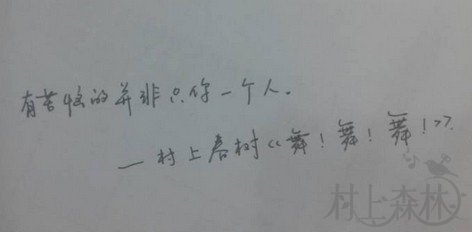 有苦恼的并非只你一个人.
—村上春树《舞！舞！舞！》
村上森林